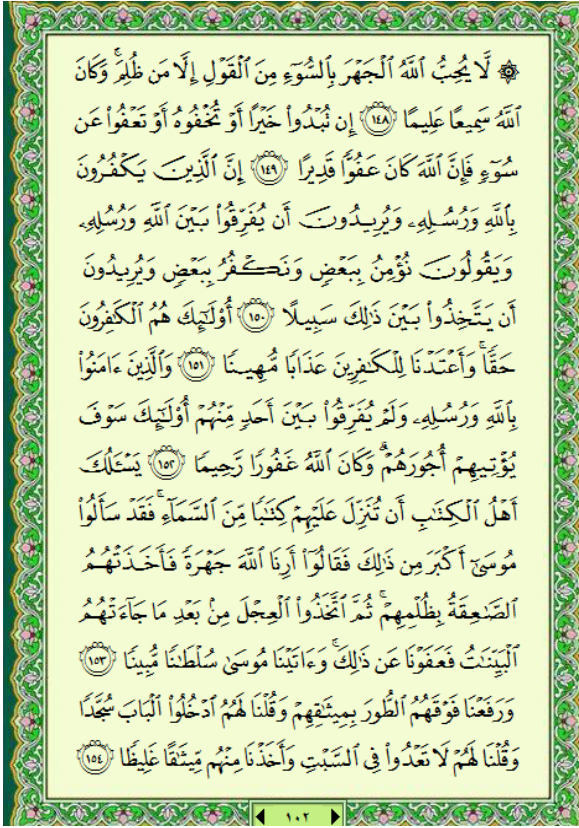 ۞ لَّا يُحِبُّ ٱللَّهُ ٱلْجَهْرَ بِٱلسُّوٓءِ مِنَ ٱلْقَوْلِ إِلَّا مَن ظُلِمَ ۚ وَكَانَ
ٱللَّهُ سَمِيعًا عَلِيمًا ﴿١٤٨﴾ إِن تُبْدُوا۟ خَيْرًا أَوْ تُخْفُوهُ أَوْ تَعْفُوا۟ عَن
سُوٓءٍ فَإِنَّ ٱللَّهَ كَانَ عَفُوًّا قَدِيرًا ﴿١٤٩﴾ إِنَّ ٱلَّذِينَ يَكْفُرُونَ
بِٱللَّهِ وَرُسُلِهِۦ وَيُرِيدُونَ أَن يُفَرِّقُوا۟ بَيْنَ ٱللَّهِ وَرُسُلِهِۦ
وَيَقُولُونَ نُؤْمِنُ بِبَعْضٍ وَنَكْفُرُ بِبَعْضٍ وَيُرِيدُونَ
أَن يَتَّخِذُوا۟ بَيْنَ ذَٰلِكَ سَبِيلًا ﴿١٥٠﴾ أُو۟لَٰٓئِكَ هُمُ ٱلْكَٰفِرُونَ
حَقًّا ۚ وَأَعْتَدْنَا لِلْكَٰفِرِينَ عَذَابًا مُّهِينًا ﴿١٥١﴾ وَٱلَّذِينَ ءَامَنُوا۟
بِٱللَّهِ وَرُسُلِهِۦ وَلَمْ يُفَرِّقُوا۟ بَيْنَ أَحَدٍ مِّنْهُمْ أُو۟لَٰٓئِكَ سَوْفَ
يُؤْتِيهِمْ أُجُورَهُمْ ۗ وَكَانَ ٱللَّهُ غَفُورًا رَّحِيمًا ﴿١٥٢﴾ يَسْـَٔلُكَ
أَهْلُ ٱلْكِتَٰبِ أَن تُنَزِّلَ عَلَيْهِمْ كِتَٰبًا مِّنَ ٱلسَّمَآءِ ۚ فَقَدْ سَأَلُوا۟
مُوسَىٰٓ أَكْبَرَ مِن ذَٰلِكَ فَقَالُوٓا۟ أَرِنَا ٱللَّهَ جَهْرَةً فَأَخَذَتْهُمُ
ٱلصَّٰعِقَةُ بِظُلْمِهِمْ ۚ ثُمَّ ٱتَّخَذُوا۟ ٱلْعِجْلَ مِنۢ بَعْدِ مَا جَآءَتْهُمُ
ٱلْبَيِّنَٰتُ فَعَفَوْنَا عَن ذَٰلِكَ ۚ وَءَاتَيْنَا مُوسَىٰ سُلْطَٰنًا مُّبِينًا ﴿١٥٣﴾
وَرَفَعْنَا فَوْقَهُمُ ٱلطُّورَ بِمِيثَٰقِهِمْ وَقُلْنَا لَهُمُ ٱدْخُلُوا۟ ٱلْبَابَ سُجَّدًا
وَقُلْنَا لَهُمْ لَا تَعْدُوا۟ فِى ٱلسَّبْتِ وَأَخَذْنَا مِنْهُم مِّيثَٰقًا غَلِيظًا ﴿١٥٤﴾
١٠٢